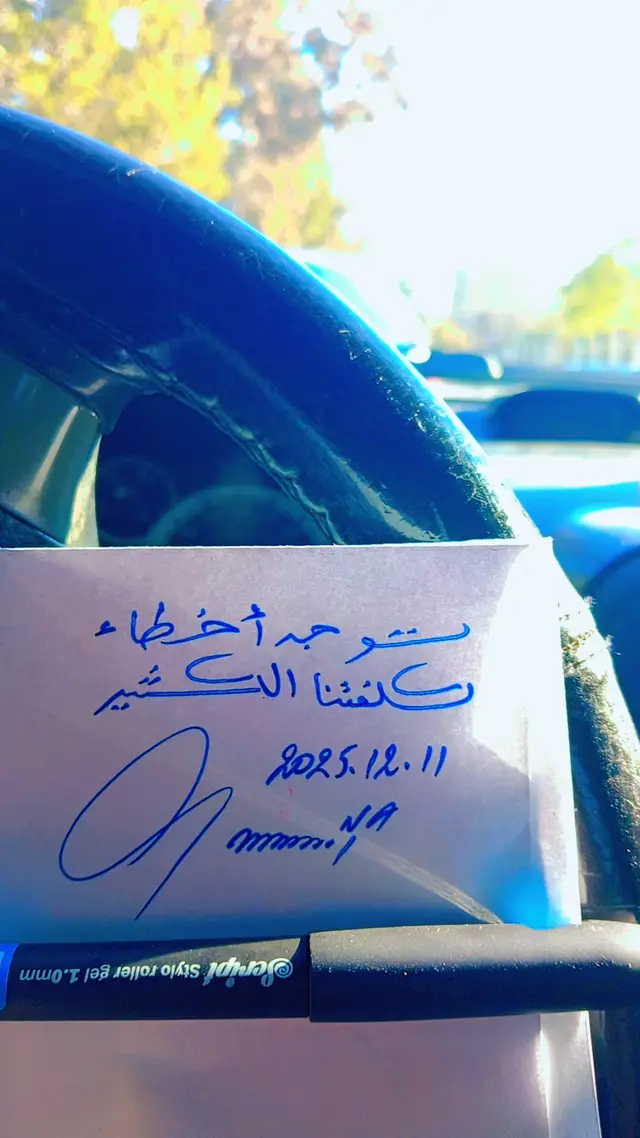 توجد أخطاء
تكلفتنا الكثير
2025.12.11
Script Stylo roller gel 1.0mm